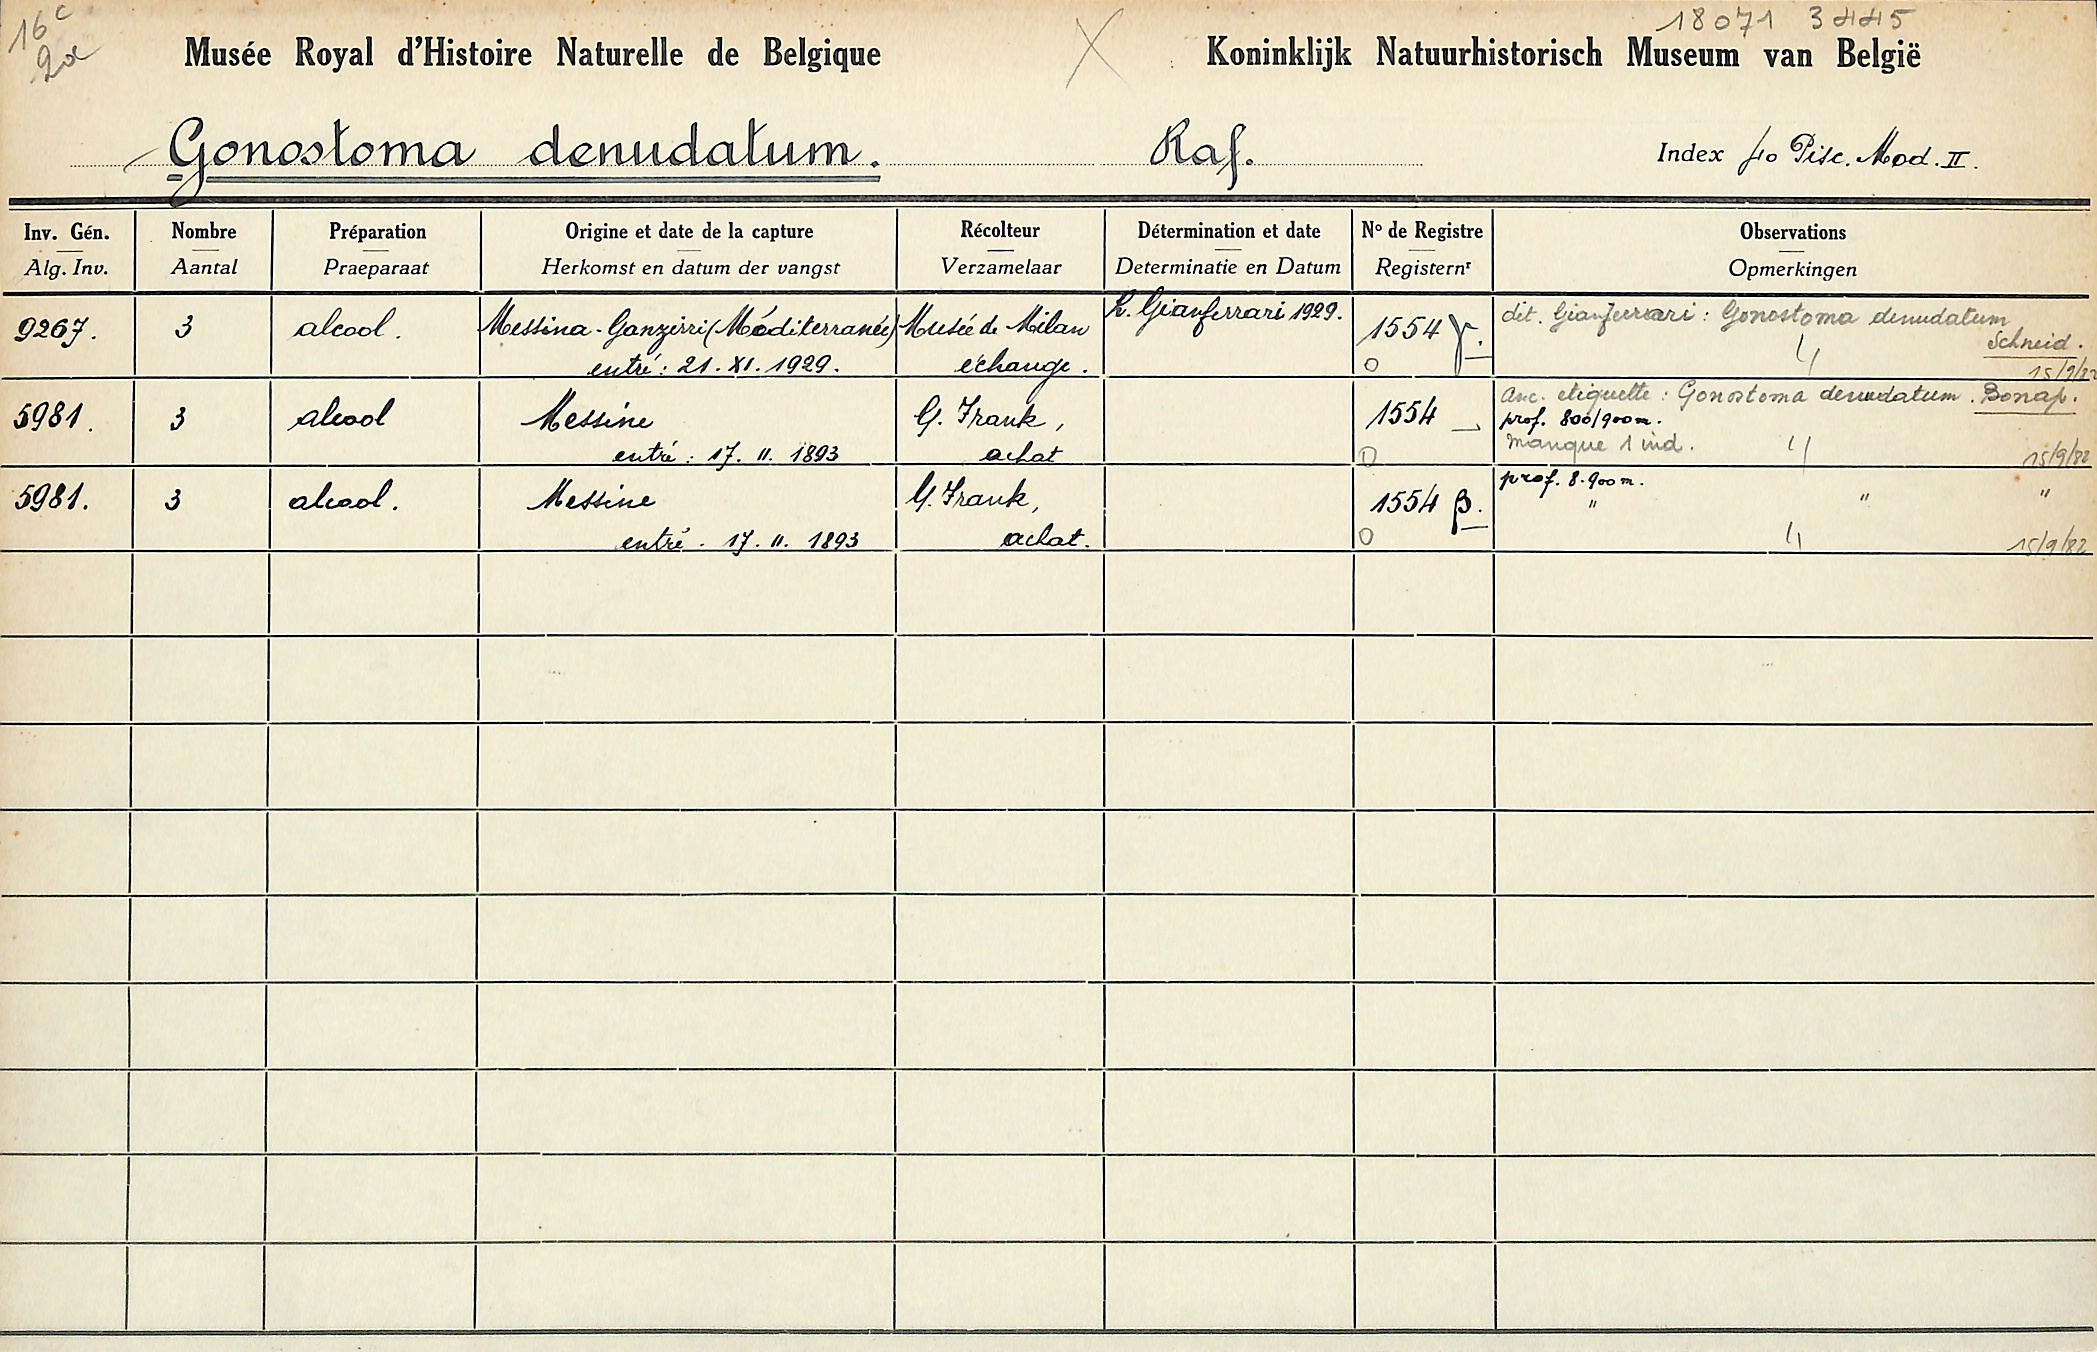 16c
2x
18071 3445
Musée Royal d'Histoire Naturelle de Belgique
X
Koninklijk Natuurhistorisch Museum van België
Gonostoma denudatum. Raf.
Index fo Pisc. Mod. II.
Inv. Gén. Nombre Préparation Origine et date de la capture Récolteur Détermination et date No de Registre Observations
Alg. Inv. Aantal Praeparaat Herkomst en datum der vangst Verzamelaar Determinatie en Datum Registernr Opmerkingen
9267. 3 alcool. Messina-Ganzirri (Méditerranée) Musée de Milan Gianferrari 1929. 1554 γ. dét. Gianferrari : Gonostoma denudatum
Schneid.
entré : 21. XI. 1929. échange. O 4 15/9/82
5981. 3 alcool Messine G. Frank, 1554 anc. etiquette : Gonostoma denudatum. Bonap.
prof. 800/900m.
entré : 17. II. 1893 achat O manque 1 ind. 4 15/9/82
5981. 3 alcool. Messine G. Frank, 1554 β. prof. 8-900m.
" " "
entré . 17. II. 1893 achat. O 4 15/9/82